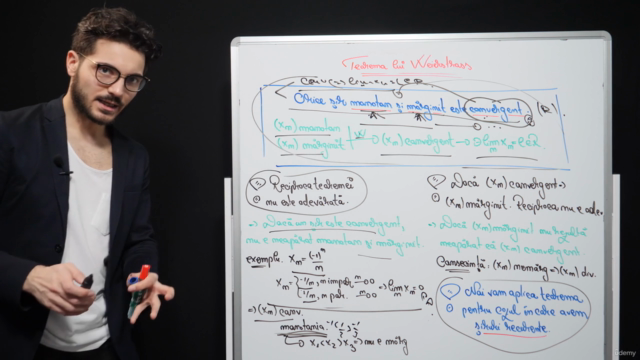 Teorema lui Weierstrass
Orice șir monoton și mărginit este convergent (R)
(xₙ) monoton
(xₙ) mărginit
W ⇒ (xₙ) convergent → ∃ lim xₙ = l ∈ R
n
Reciproca teoremei
nu este adevărată.
⇒ Dacă un șir este convergent,
nu e neapărat monoton și mărginit.
exemplu: xₙ = (-1)ⁿ/n
xₙ = -1/n, n impar → 0
1/n, n par → 0
⇒ lim xₙ = 0
⇒ (xₙ) conv.
monotonia:
x₁ < x₂ > x₃ ⇒ nu e
Dacă (xₙ) convergent ⇒
(xₙ) mărginit. Reciproca nu e adev.
⇒ Dacă (xₙ) mărginit nu rezultă
neapărat că (xₙ) convergent
Consecință: (xₙ) nemărg ⇒ (xₙ) div.
Noi vom aplica teorema
pentru cazul în care avem
șiruri recurente.
ûdemy